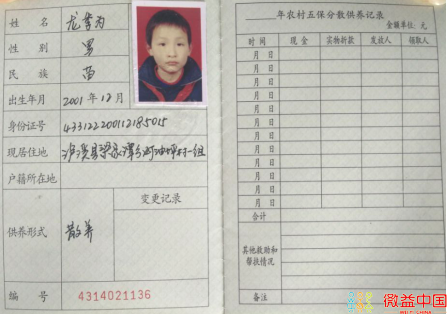 姓 名 龙
性 别 男
民 族 苗
出生年月 2001年12月
身份证号 433122200112185015
现居住地 泸溪县梁家潭乡 村一组
户籍所在地
变更记录
供养形式 散养
编 号 4314021136
年农村五保分散供养记录
金额单位:元
时 间 现 金 实物折款 发放人 领取人
月 日
月 日
月 日
月 日
月 日
月 日
月 日
月 日
月 日
月 日
月 日
月 日
合计
其他救助和
帮扶情况
备注
微益中国